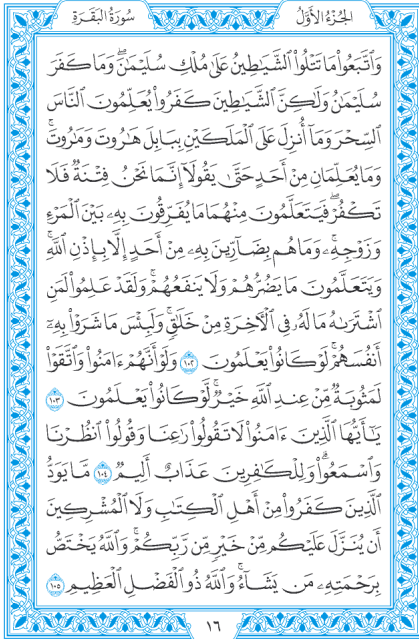 الجُزْءُ الأَوَّلُ
سُورَةُ البَقَرَةِ
وَٱتَّبَعُوا۟ مَا تَتْلُوا۟ ٱلشَّيَـٰطِينُ عَلَىٰ مُلْكِ سُلَيْمَـٰنَ ۖ وَمَا كَفَرَ
سُلَيْمَـٰنُ وَلَـٰكِنَّ ٱلشَّيَـٰطِينَ كَفَرُوا۟ يُعَلِّمُونَ ٱلنَّاسَ
ٱلسِّحْرَ وَمَآ أُنزِلَ عَلَى ٱلْمَلَكَيْنِ بِبَابِلَ هَـٰرُوتَ وَمَـٰرُوتَ ۚ
وَمَا يُعَلِّمَانِ مِنْ أَحَدٍ حَتَّىٰ يَقُولَآ إِنَّمَا نَحْنُ فِتْنَةٌ فَلَا
تَكْفُرْ ۖ فَيَتَعَلَّمُونَ مِنْهُمَا مَا يُفَرِّقُونَ بِهِۦ بَيْنَ ٱلْمَرْءِ
وَزَوْجِهِۦ ۚ وَمَا هُم بِضَآرِّينَ بِهِۦ مِنْ أَحَدٍ إِلَّا بِإِذْنِ ٱللَّهِ ۚ
وَيَتَعَلَّمُونَ مَا يَضُرُّهُمْ وَلَا يَنفَعُهُمْ ۚ وَلَقَدْ عَلِمُوا۟ لَمَنِ
ٱشْتَرَىٰهُ مَا لَهُۥ فِى ٱلْـَٔاخِرَةِ مِنْ خَلَـٰقٍ ۚ وَلَبِئْسَ مَا شَرَوْا۟ بِهِۦٓ
أَنفُسَهُمْ ۚ لَوْ كَانُوا۟ يَعْلَمُونَ ١٠٢ وَلَوْ أَنَّهُمْ ءَامَنُوا۟ وَٱتَّقَوْا۟
لَمَثُوبَةٌ مِّنْ عِندِ ٱللَّهِ خَيْرٌ ۖ لَّوْ كَانُوا۟ يَعْلَمُونَ ١٠٣
يَـٰٓأَيُّهَا ٱلَّذِينَ ءَامَنُوا۟ لَا تَقُولُوا۟ رَٰعِنَا وَقُولُوا۟ ٱنظُرْنَا
وَٱسْمَعُوا۟ ۗ وَلِلْكَـٰفِرِينَ عَذَابٌ أَلِيمٌ ١٠٤ مَّا يَوَدُّ
ٱلَّذِينَ كَفَرُوا۟ مِنْ أَهْلِ ٱلْكِتَـٰبِ وَلَا ٱلْمُشْرِكِينَ
أَن يُنَزَّلَ عَلَيْكُم مِّنْ خَيْرٍ مِّن رَّبِّكُمْ ۗ وَٱللَّهُ يَخْتَصُّ
بِرَحْمَتِهِۦ مَن يَشَآءُ ۚ وَٱللَّهُ ذُو ٱلْفَضْلِ ٱلْعَظِيمِ ١٠٥
١٦